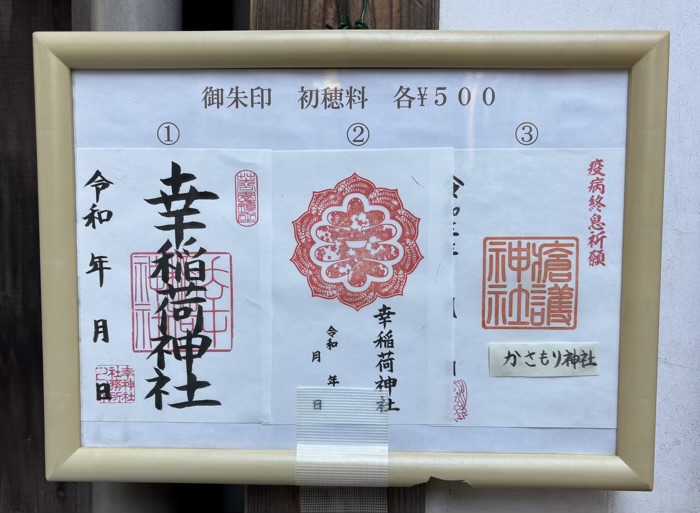 御朱印 初穂料 各¥500
①
令和 年 月 日
幸稲荷神社
幸神社
社務所
②
幸稲荷神社
令和 年
月 日
③
疫病終息祈願
瘡護
神社
かさもり神社